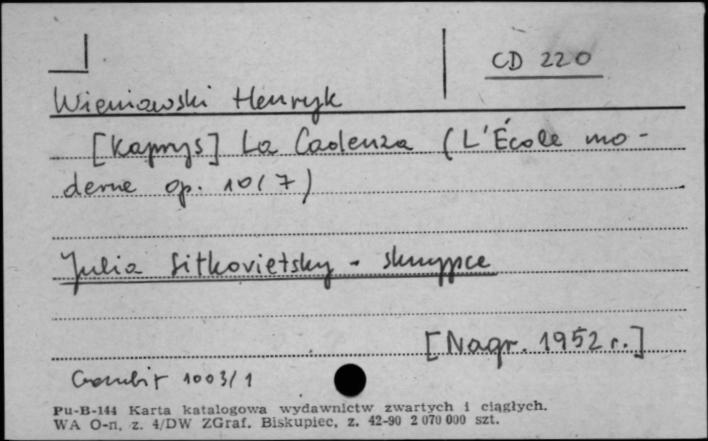 CD 220
Wieniawski Henryk
[Kaprys] La Cadenza (L'École mo-
derne op. 10/7)
Julia Sitkovietsky - skrzypce
[Nagr. 1952 r.]
1003/1
Pu-B-144 Karta katalogowa wydawnictw zwartych i ciągłych.
WA O-n, z. 4/DW ZGraf. Biskupiec, z. 42-90 2 070 000 szt.